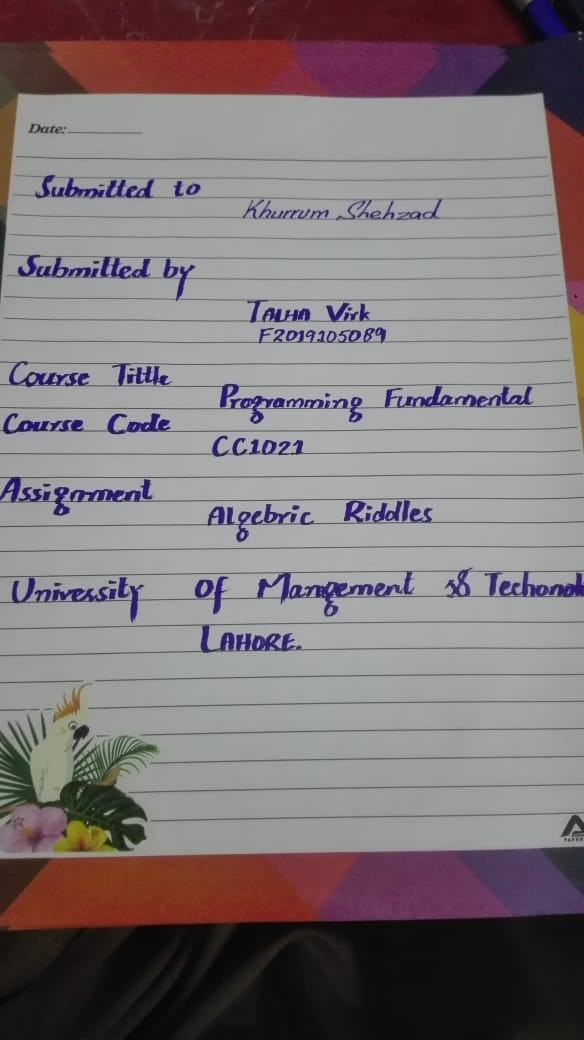 Date:
Submitted to
Khurrum Shehzad
Submitted by
TALHA Virk
F2019105089
Course Tittle
Programming Fundamental
Course Code
CC1021
Assignment
Algebric Riddles
University of Mangement & Techonol
LAHORE.
PAPER